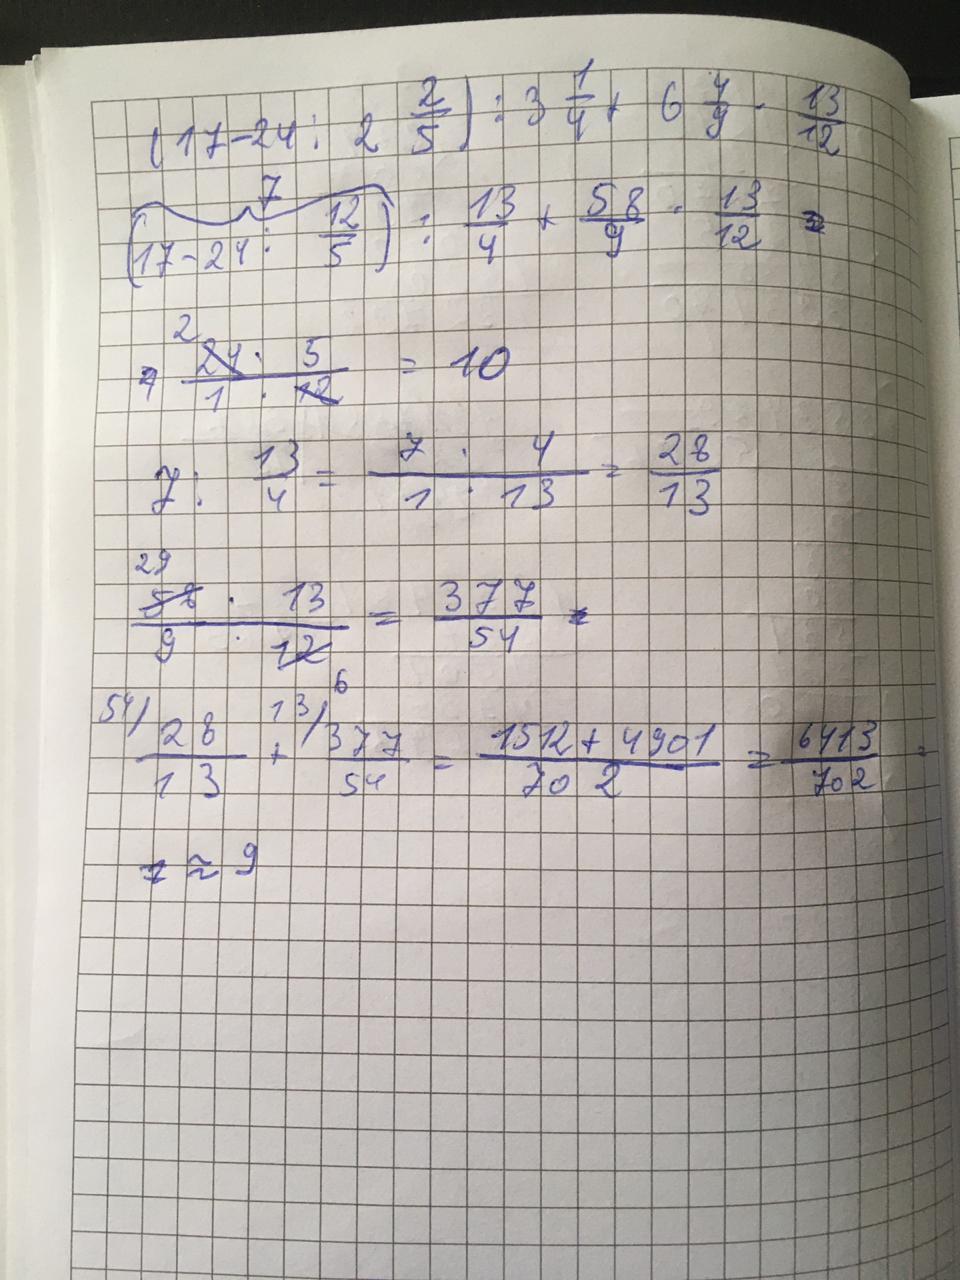 (17-24 : 2 2/5) : 3 1/4 + 6 4/9 · 13/12
7
(17-24 : 12/5) : 13/4 + 58/9 · 13/12 =
= 2 24 · 5 / 1 · 12 = 10
7 : 13/4 = 7 · 4 / 1 · 13 = 28/13
29
58 · 13 / 9 · 12 = 377/54 =
6
54/ 28/13 + 13/ 377/54 = 1512 + 4901 / 702 = 6413/702 =
= ≈ 9